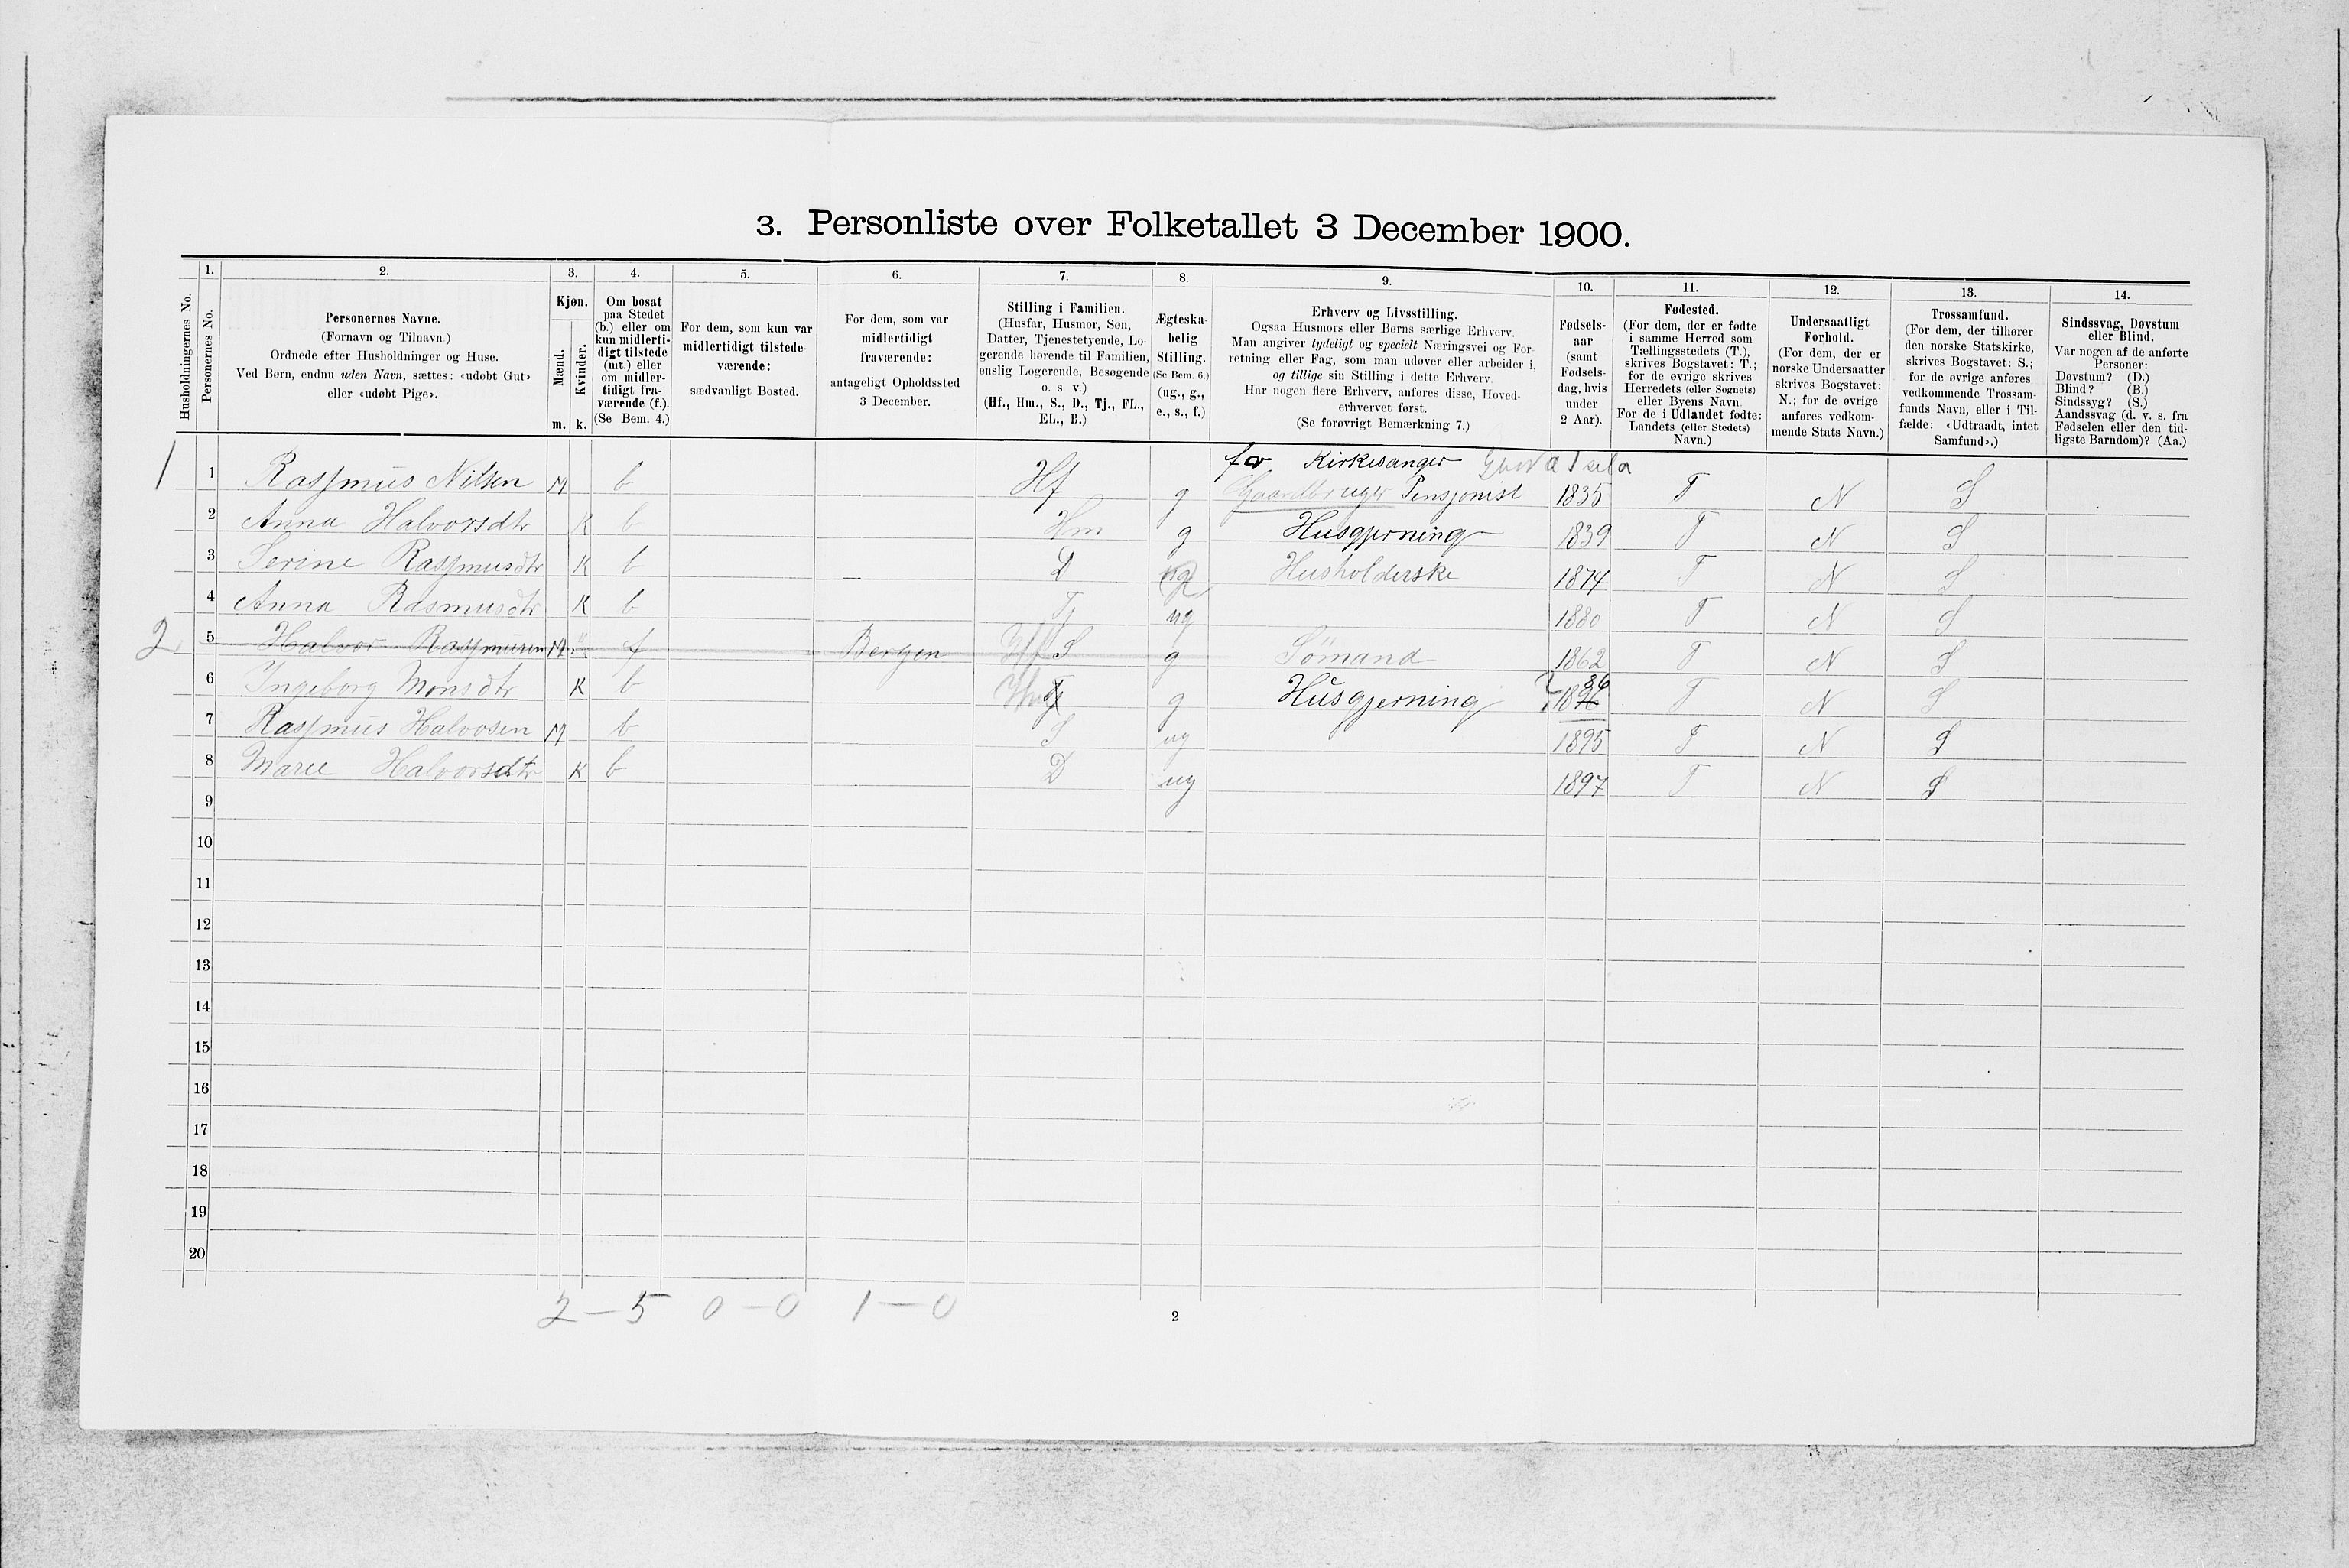 3. Personliste over Folketallet 3 December 1900.
1. 2. 3. 4. 5. 6. 7. 8. 9. 10. 11. 12. 13. 14.
Husholdningernes No.
Personernes No.
Personernes Navne.
(Fornavn og Tilnavn.)
Ordnede efter Husholdninger og Huse.
Ved Børn, endnu uden Navn, sættes: «udøbt Gut»
eller «udøbt Pige».
Kjøn.
Mænd.
Kvinder.
m. k.
Om bosat
paa Stedet
(b.) eller om
kun midlerti-
digt tilstede
(mt.) eller
om midler-
tidigt fra-
værende (f.).
(Se Bem. 4.)
For dem, som kun var
midlertidigt tilstede-
værende:
sædvanligt Bosted.
For dem, som var
midlertidigt
fraværende:
antageligt Opholdssted
3 December.
Stilling i Familien.
(Husfar, Husmor, Søn,
Datter, Tjenestetyende, Lo-
gerende hørende til Familien,
enslig Logerende, Besøgende
o. s v.)
(Hf., Hm., S., D., Tj., FL.,
EL., B.)
Ægteska-
belig
Stilling.
(Se Bem. 6.)
(ug., g.,
e., s., f.)
Erhverv og Livsstilling.
Ogsaa Husmors eller Børns særlige Erhverv.
Man angiver tydeligt og specielt Næringsvei og For-
retning eller Fag, som man udøver eller arbeider i,
og tillige sin Stilling i dette Erhverv.
Har nogen flere Erhverv, anføres disse, Hoved-
erhvervet først.
(Se forøvrigt Bemærkning 7.)
Fødsels-
aar
(samt
Fødsels-
dag, hvis
under
2 Aar).
Fødested.
(For dem, der er fødte
i samme Herred som
Tællingsstedets (T.),
skrives Bogstavet: T.;
for de øvrige skrives
Herredets (eller Sognets)
eller Byens Navn.
For de i Udlandet fødte:
Landets (eller Stedets)
Navn.)
Undersaatligt
Forhold.
(For dem, der er
norske Undersaatter
skrives Bogstavet:
N.; for de øvrige
anføres vedkom-
mende Stats Navn.)
Trossamfund.
(For dem, der tilhører
den norske Statskirke,
skrives Bogstavet: S.;
for de øvrige anføres
vedkommende Trossam-
funds Navn, eller i Til-
fælde: «Udtraadt, intet
Samfund».)
Sindssvag, Døvstum
eller Blind.
Var nogen af de anførte
Personer:
Døvstum? (D.)
Blind? (B.)
Sindssyg? (S.)
Aandssvag (d. v. s. fra
Fødselen eller den tid-
ligste Barndom)? (Aa.)
fv. Kirkesanger
1 1 Rasmus Nilsen M b Hf g Gaardbruger Pensjonist 1835 T N S
2 Anna Halvorsdtr K b Hm g Husgjerning 1839 T N S
3 Serine Rasmusdtr K b D Husholderske 1874 T N S
4 Anna Rasmusdtr K b Tj ug 1880 T N S
2 5 Halvor Rasmusen M f Bergen Hf S g Sömand 1862 T N S
6 Ingeborg Monsdtr K b g Husgjerning ? 18 T N S
7 Rasmus Halvosen M b S ug 1895 T N S
8 Marie Halvorsdtr K b D ug 1897 T N S
9
10
11
12
13
14
15
16
17
18
19
20
2 — 5 0 — 0 1 — 0
2